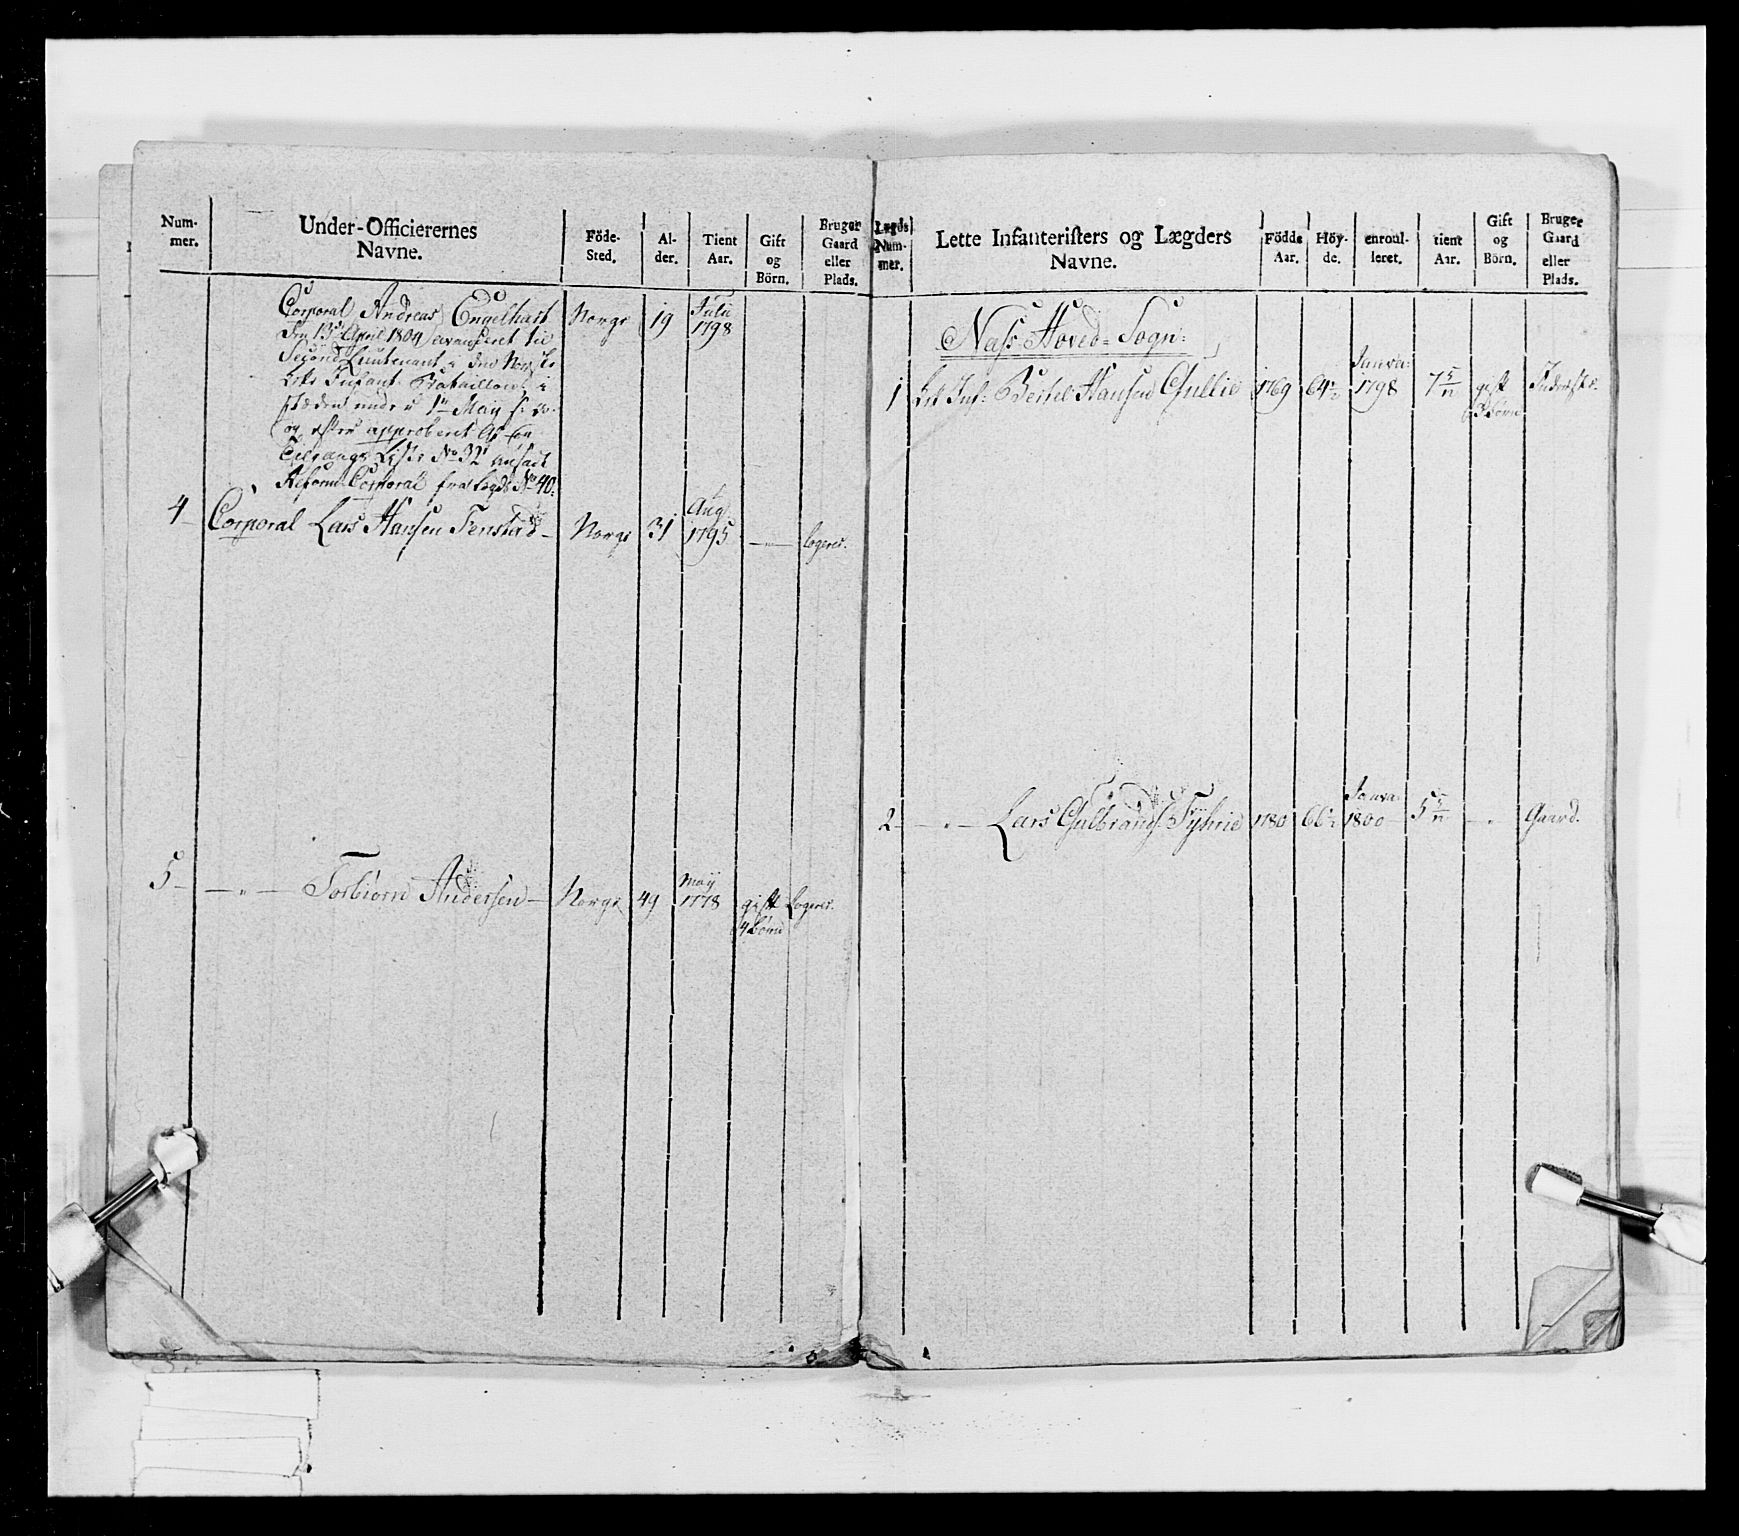 Num-
mer.
Under-Officierernes
Navne.
Föde-
Sted.
Al-
der.
Tient
Aar.
Gift
og
Börn.
Bruger
Gaard
eller
Plads.
Corporal Andreas Engelhart Norge 19 Julii 1798
den 13de April 1804 avanceret til
Second Lieutenant i den Norske
Infant: Batallions i
under 1ste May
og efter approberet
Liste No 32 ansadt
Reform: Corporal fra Legd No 40.
4 Corporal Lars Hansen Tenstad Norge 31 Aug 1795 — logerer.
5 — " — Torbiörn Andersen Norge 49 May 1778 gift 4 börn Logerer.
Legds
Num-
mer.
Lette Infanteristers og Lægders
Navne.
Födde
Aar.
Höy-
de.
enroul-
leret.
tient
Aar.
Gift
og
Börn.
Bruger
Gaard
eller
Plads.
Næss Hoved-Sogn:
1 Let Inf: Bertel Hansen Gullie 1769 64 Janva: 1798 7 5/12 gift 3 börn
2 — " — Lars Gulbrands: Tyhrie 1780 66 Janva: 1800 5 5/12 — " Gaard.